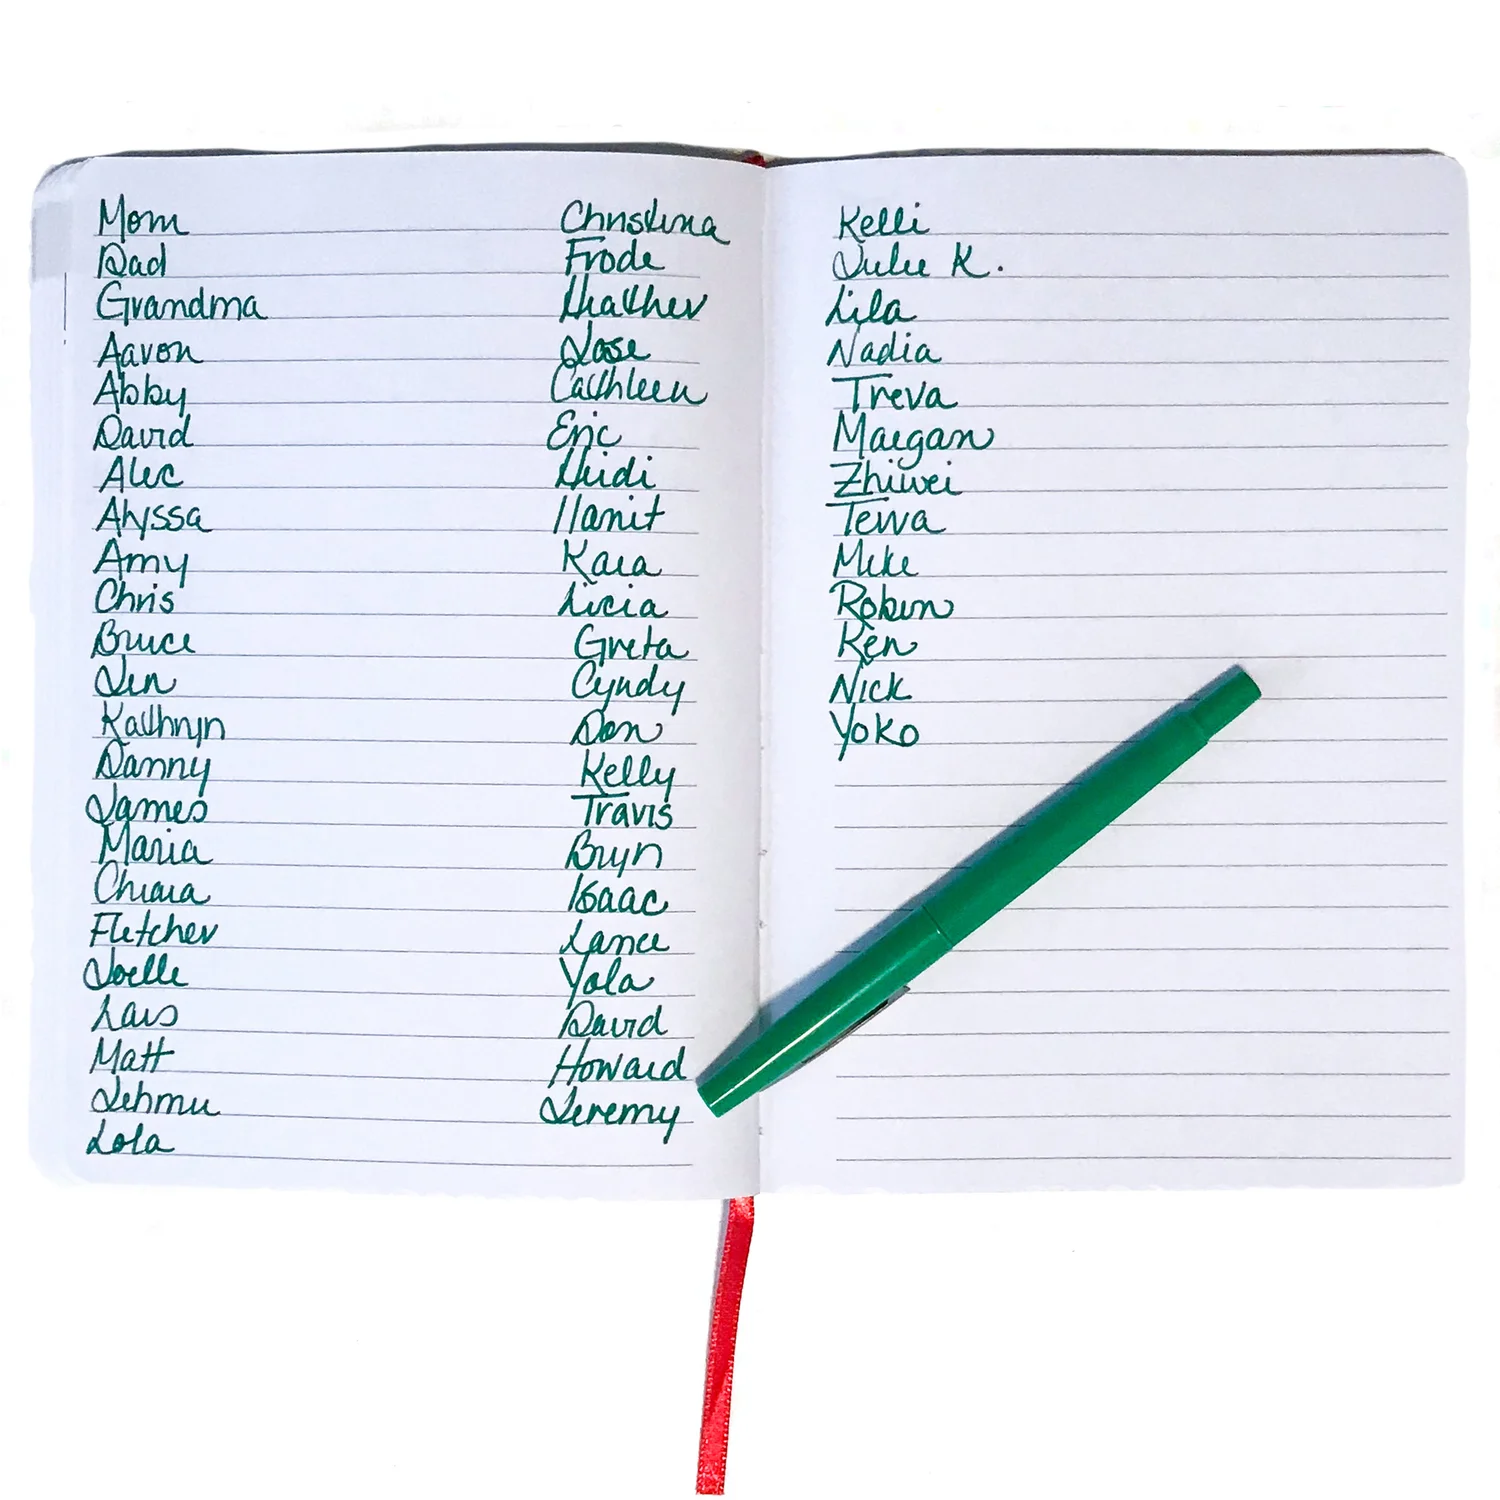 Mom
Dad
Grandma
Aaron
Abby
David
Alec
Alyssa
Amy
Chris
Bruce
Jen
Kathryn
Danny
James
Maria
Chiara
Fletcher
Joelle
Lars
Matt
Tehmu
Lola
Christina
Frode
Heather
Jose
Cathleen
Eric
Heidi
Hanit
Kara
Licia
Greta
Cyndy
Don
Kelly
Travis
Bryn
Isaac
Lance
Yola
David
Howard
Jeremy
Kelli
Julie K.
Lila
Nadia
Treva
Maegan
Zhiwei
Tewa
Mike
Robin
Ken
Nick
Yoko